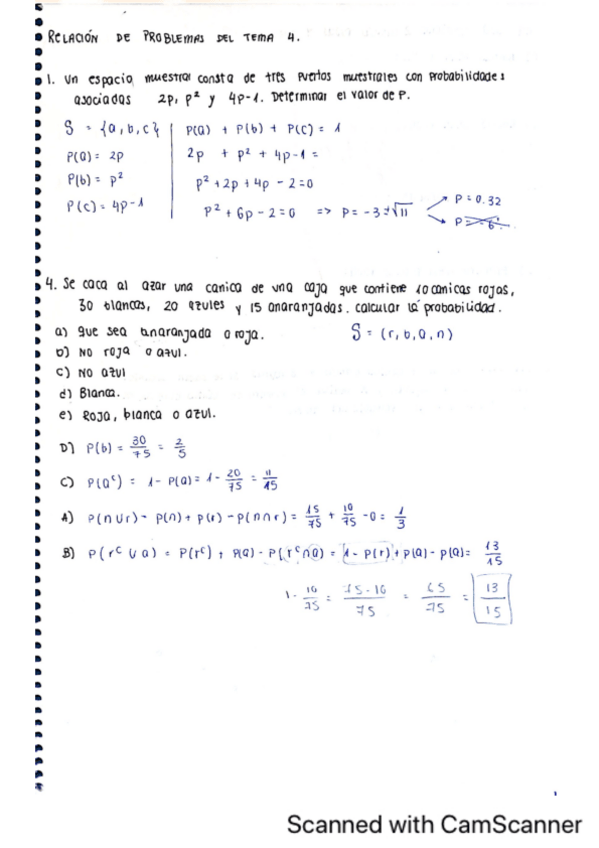 RELACIÓN DE PROBLEMAS DEL TEMA 4.
1. Un espacio muestral consta de tres puntos muestrales con probabilidades
asociadas 2p, p² y 4p-1. Determinar el valor de P.
S = {a, b, c} P(a) + P(b) + P(c) = 1
P(a) = 2p 2p + p² + 4p-1 =
P(b) = p² p² + 2p + 4p - 2 = 0
P(c) = 4p-1 p² + 6p - 2 = 0 => P = -3 ± √11 P = 0.32
P = -6.
4. Se caca al azar una canica de una caja que contiene 10 canicas rojas,
30 blancas, 20 azules y 15 anaranjadas. calcular la probabilidad.
a) que sea anaranjada o roja. S = (r, b, a, n)
b) NO roja o azul.
c) NO azul
d) Blanca.
e) Roja, blanca o azul.
D) P(b) = 30/75 = 2/5
C) P(aᶜ) = 1 - P(a) = 1 - 20/75 = 11/15
A) P(n ∪ r) - P(n) + p(r) - P(n ∩ r) = 15/75 + 10/75 - 0 = 1/3
B) P(rᶜ ∪ a) = P(rᶜ) + P(a) - P(rᶜ ∩ a) = 1 - P(r) + P(a) - p(a) = 13/15
1 - 10/75 = 75 - 10/75 = 65/75 = 13/15
Scanned with CamScanner